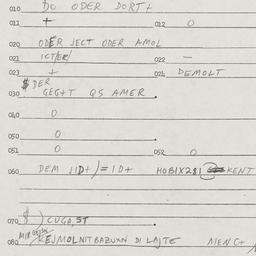 010 DO ODER DORT+
011 + 012 O
020 ODER JECT ODER AMOL
021 ICT/ER/ 022 —
023 + 024 DEMOLT
$ DER
030 GEGT QS AMER .
040 O
050 O .
051 O 052 O
060 DEM )ID+)=ID+ HOBIX281 KENT
070 $ ) CUGA, ST .
080 KEJMOLNITBAZUXN DI LAJTE MENC+